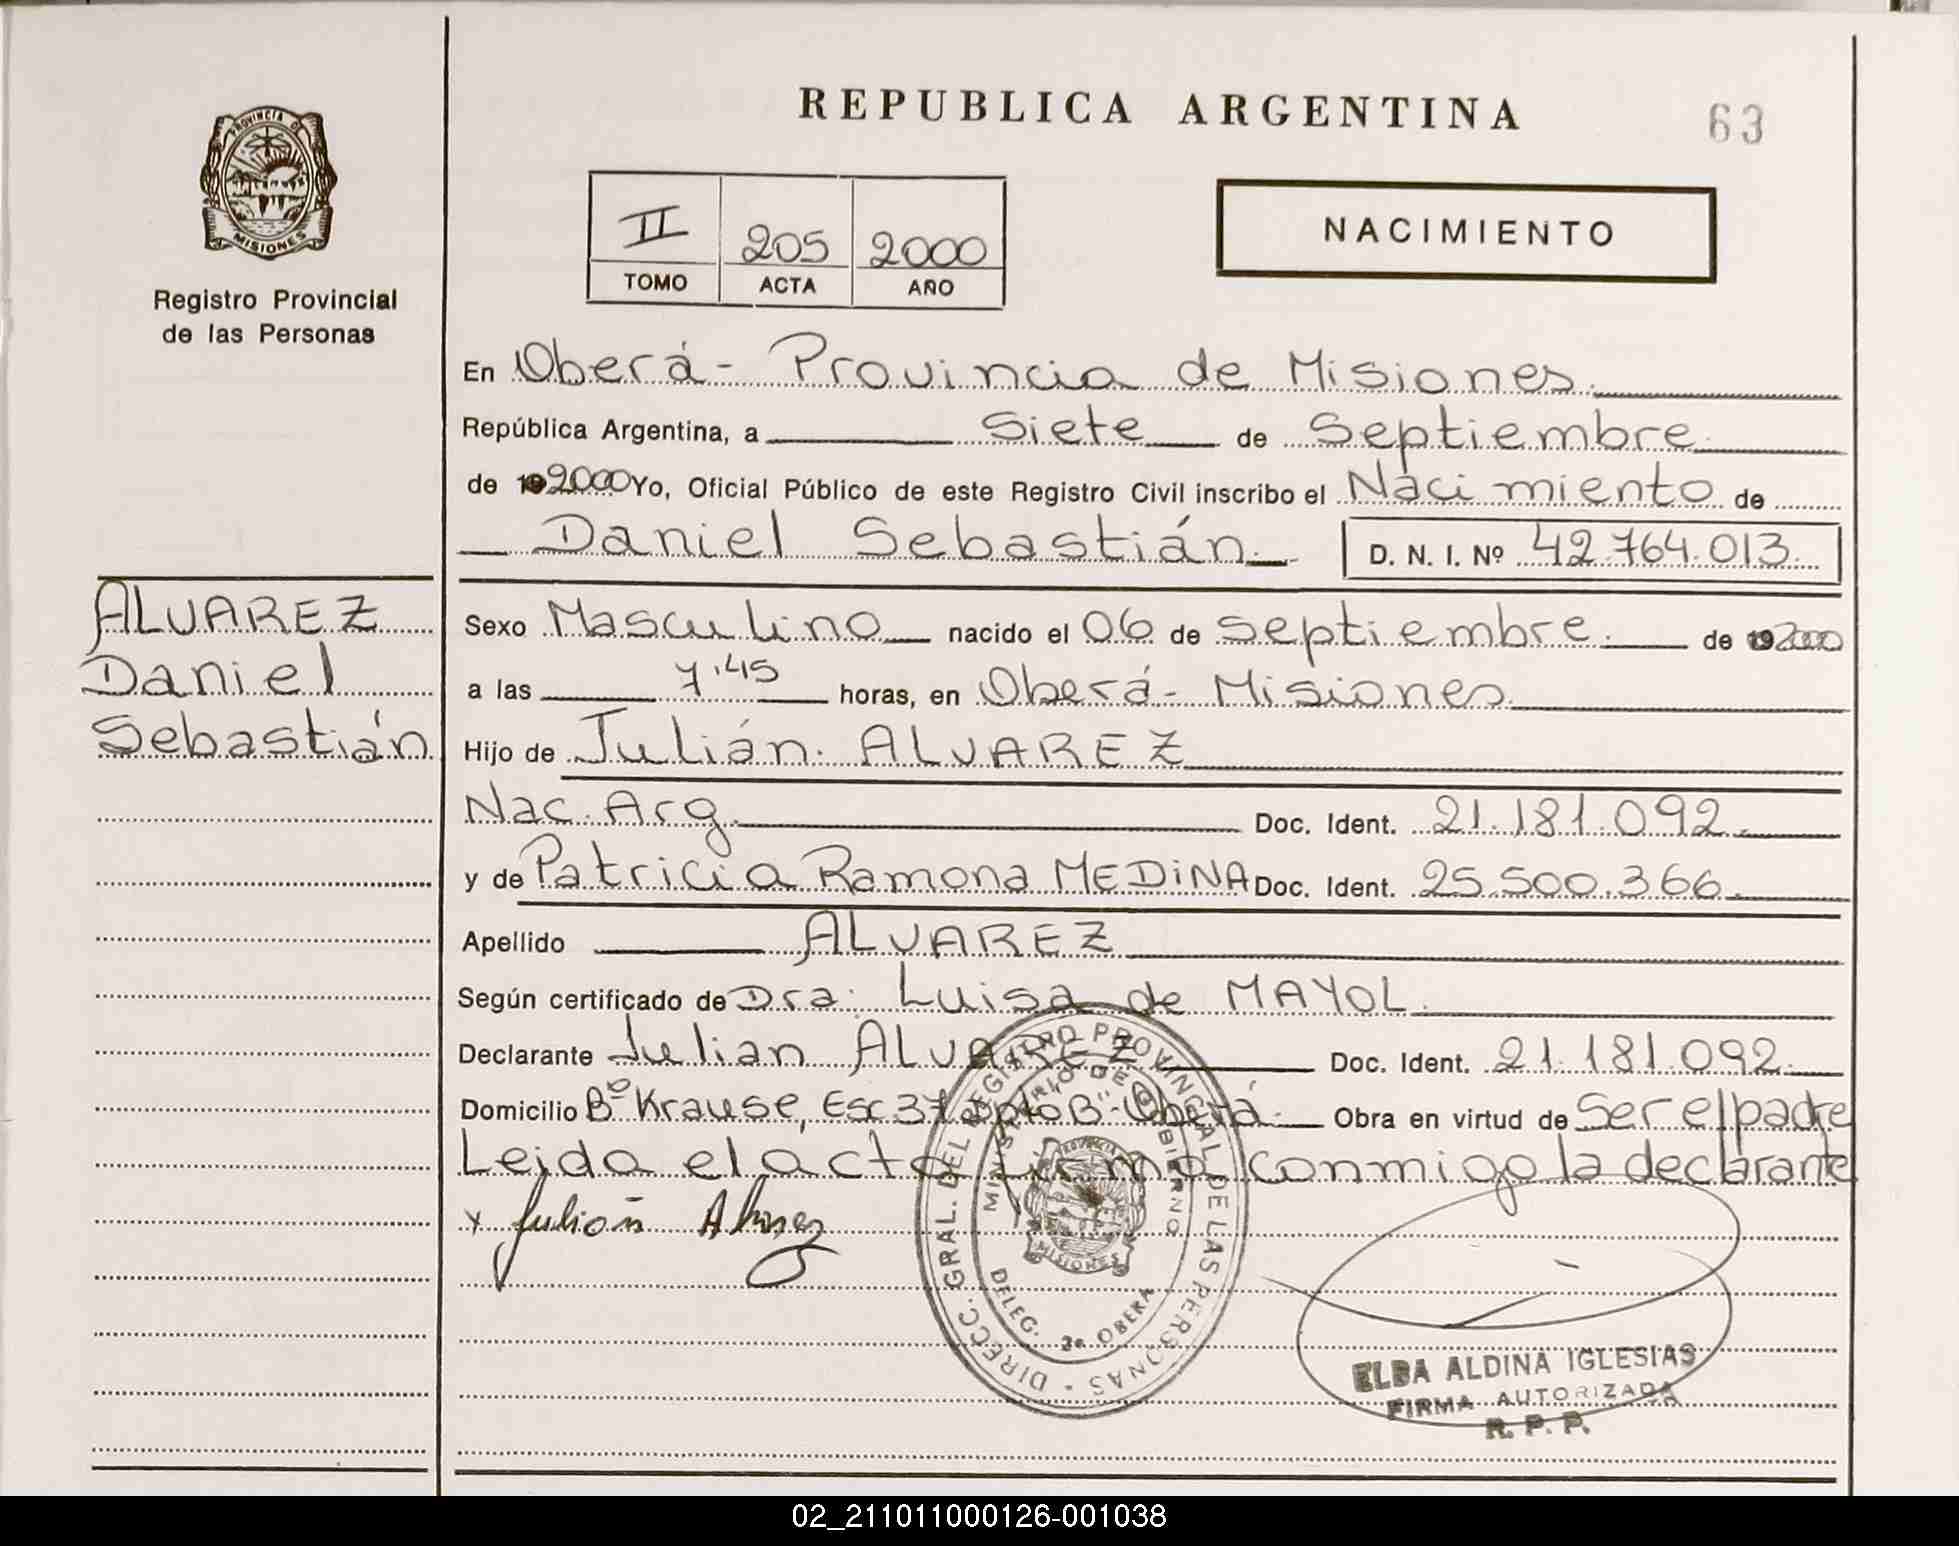 REPUBLICA ARGENTINA
63
PROVINCIA D
MISIONES
Registro Provincial
de las Personas
II 205 2000
TOMO ACTA AÑO
NACIMIENTO
En Oberá - Provincia de Misiones.
República Argentina, a Siete de Septiembre
de 192000 Yo, Oficial Público de este Registro Civil inscribo el Nacimiento de
Daniel Sebastián. D. N. I. Nº 42.764.013.
ALVAREZ
Daniel
Sebastián
Sexo Masculino nacido el 06 de Septiembre. de 192000
a las 7.45 horas, en Oberá - Misiones
Hijo de Julián. ALVAREZ
Nac. Arg. Doc. Ident. 21.181.092.
y de Patricia Ramona MEDiNA Doc. Ident. 25.500.366.
Apellido ALVAREZ
Según certificado de Dra. Luisa de MAYOL.
Declarante Julian ALVAREZ Doc. Ident. 21.181.092.
Domicilio Bº Krause, Esc 37 Dpto B - Oberá. Obra en virtud de Ser el padre
Leida el acta firma conmigo la declarante
x Julián Alvarez
DIRECC. GRAL. DEL REGISTRO PROVINCIAL DE LAS PERSONAS
MINISTERIO DE GOBIERNO
PROVINCIA
MISIONES
DELEG. 2a. OBERA
ELBA ALDINA IGLESIAS
FIRMA AUTORIZADA
R. P. P.
02_211011000126-001038